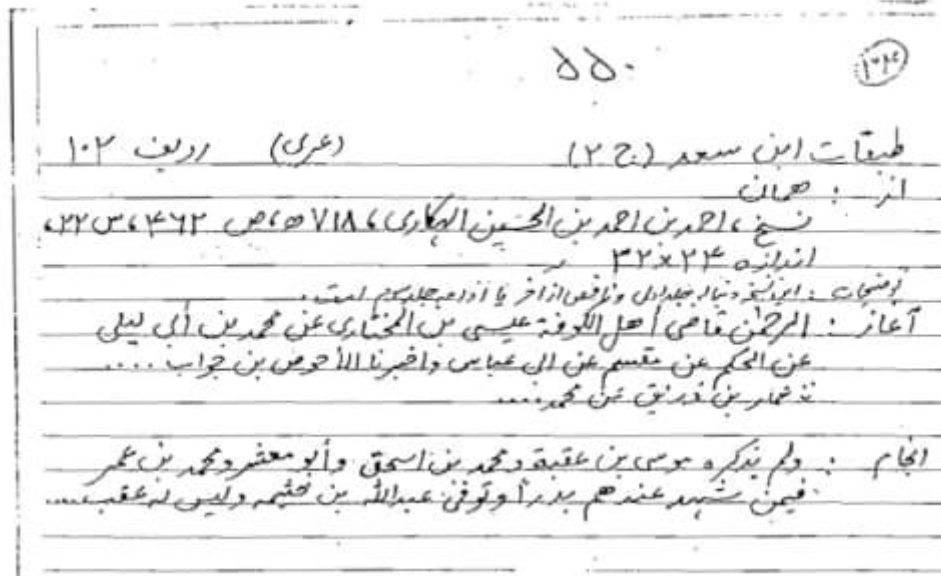 ۵۵۰
۱۶۴
طبقات ابن سعد (ج ۲) (عربی) ردیف ۱۰۲
از : همان
نسخ ، احمد بن احمد بن الحسین الهکاری ، ۷۱۸ ه ، ص ۴۶۲ ، س ۲۲ ،
اندازه ۲۴×۳۲
توضیحات : این نسخه دنباله جلد اول و ناقص از آخر یا از اواسط جلد سوم است .
آغاز : الرحمن قاضی أهل الکوفة عیسی بن المختاری عن محمد بن أبی لیلی
عن الحکم عن مقسم عن ابی عباس واخبرنا الأحوص بن جواب ....
عمار بن رزیق عن محمد ....
انجام : ولم یذکره موسی بن عقبة ومحمد بن اسحق وأبو معشر ومحمد بن عمر
فیمن شهد عندهم بدراً وتوفی عبدالله بن خثیمه ولیس له عقب ....